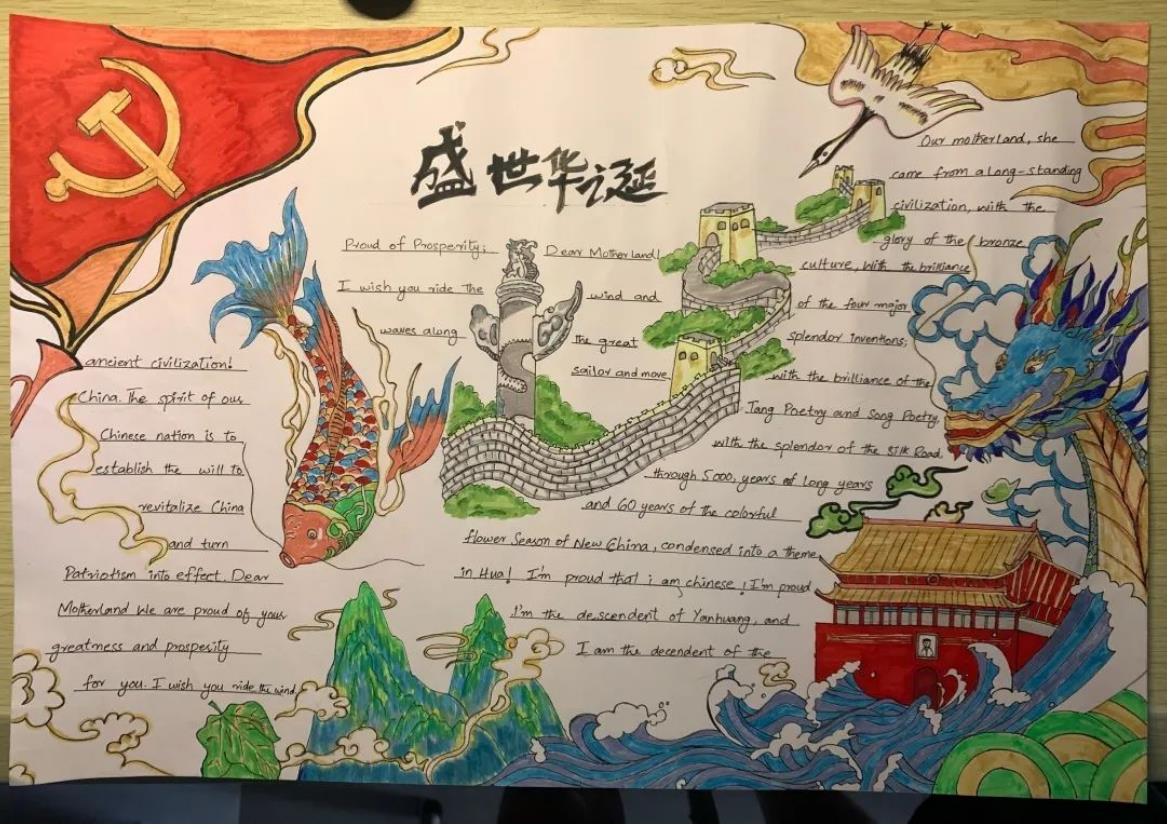 盛世华诞
Proud of Prosperity;
Dear Motherland!
I wish you ride the
wind and
waves along
the great
sailor and move
Our motherland, she
came from a long-standing
civilization, with the
glory of the bronze
culture, with the brilliance
of the four major
splendor inventions;
with the brilliance of the
Tang Poetry and Song Poetry,
with the splendor of the Silk Road
through 5000, years of Long years
and 60 years of the colorful
flower Season of New China, condensed into a theme
in Hua! I'm proud that i am chinese! I'm proud
I'm the descendent of Yanhuang, and
I am the decendent of the
ancient civilization!
China. The spirit of our
Chinese nation is to
establish the will to
revitalize China
and turn
Patriotism into effect. Dear
Motherland We are proud of your
greatness and prosperity
for you. I wish you ride the wind